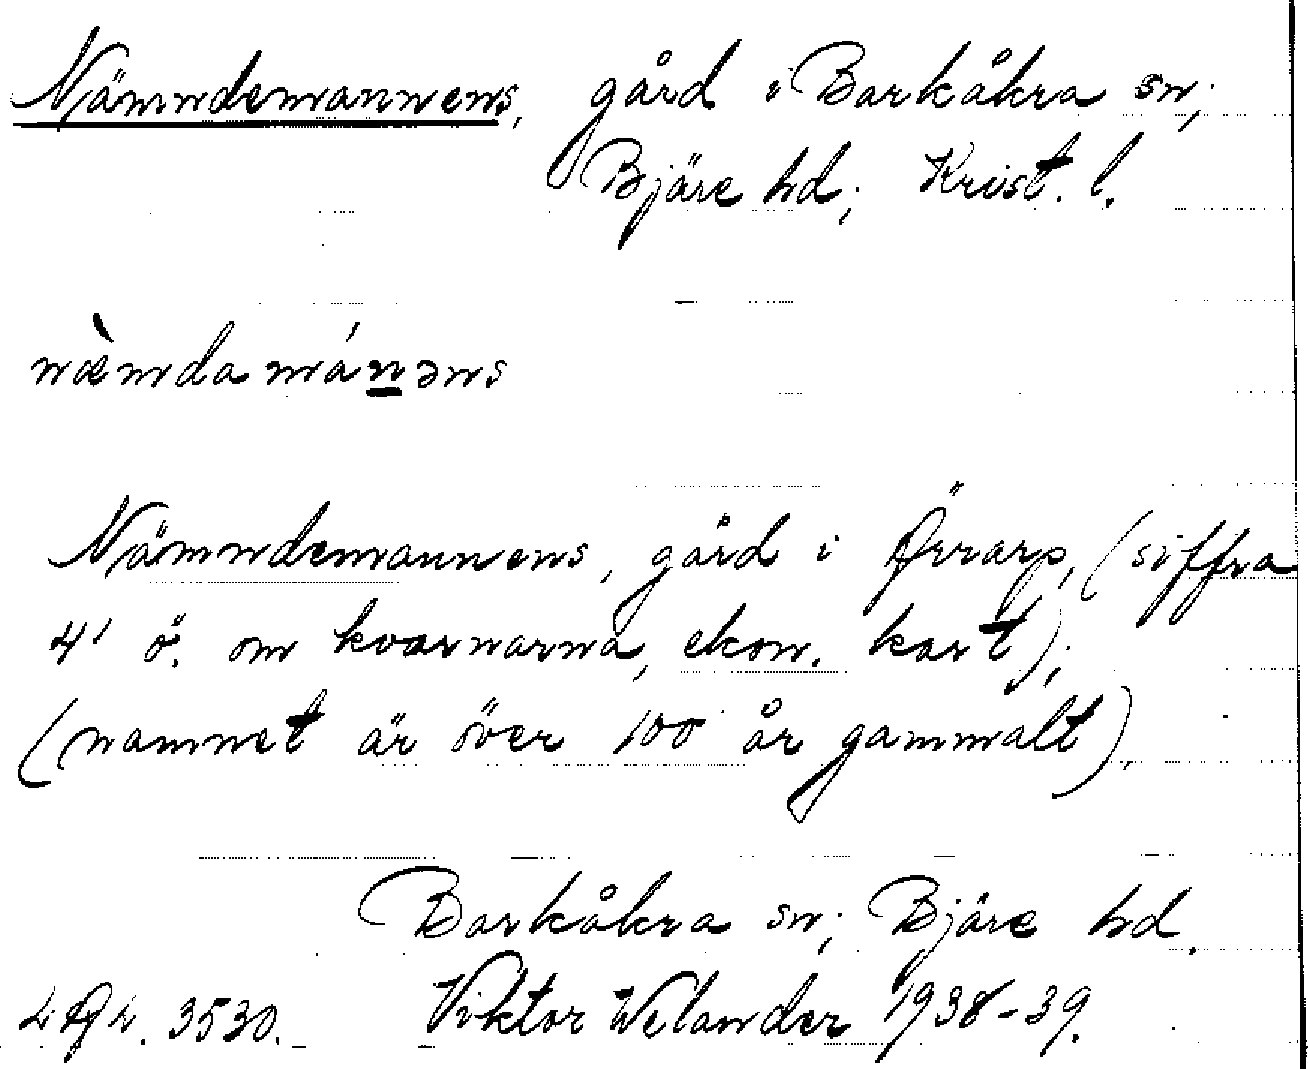 Nämndemannens, gård i Barkåkra sn;
Bjäre hd; Krist. l.
næ̀mda mánəns
Nämndemannens, gård i Örrarp, (siffra
4' ö. om kvarnarna, ekon. kart);
(namnet är över 100 år gammalt).
Barkåkra sn; Bjäre hd.
3530. Viktor Welander 1938-39.